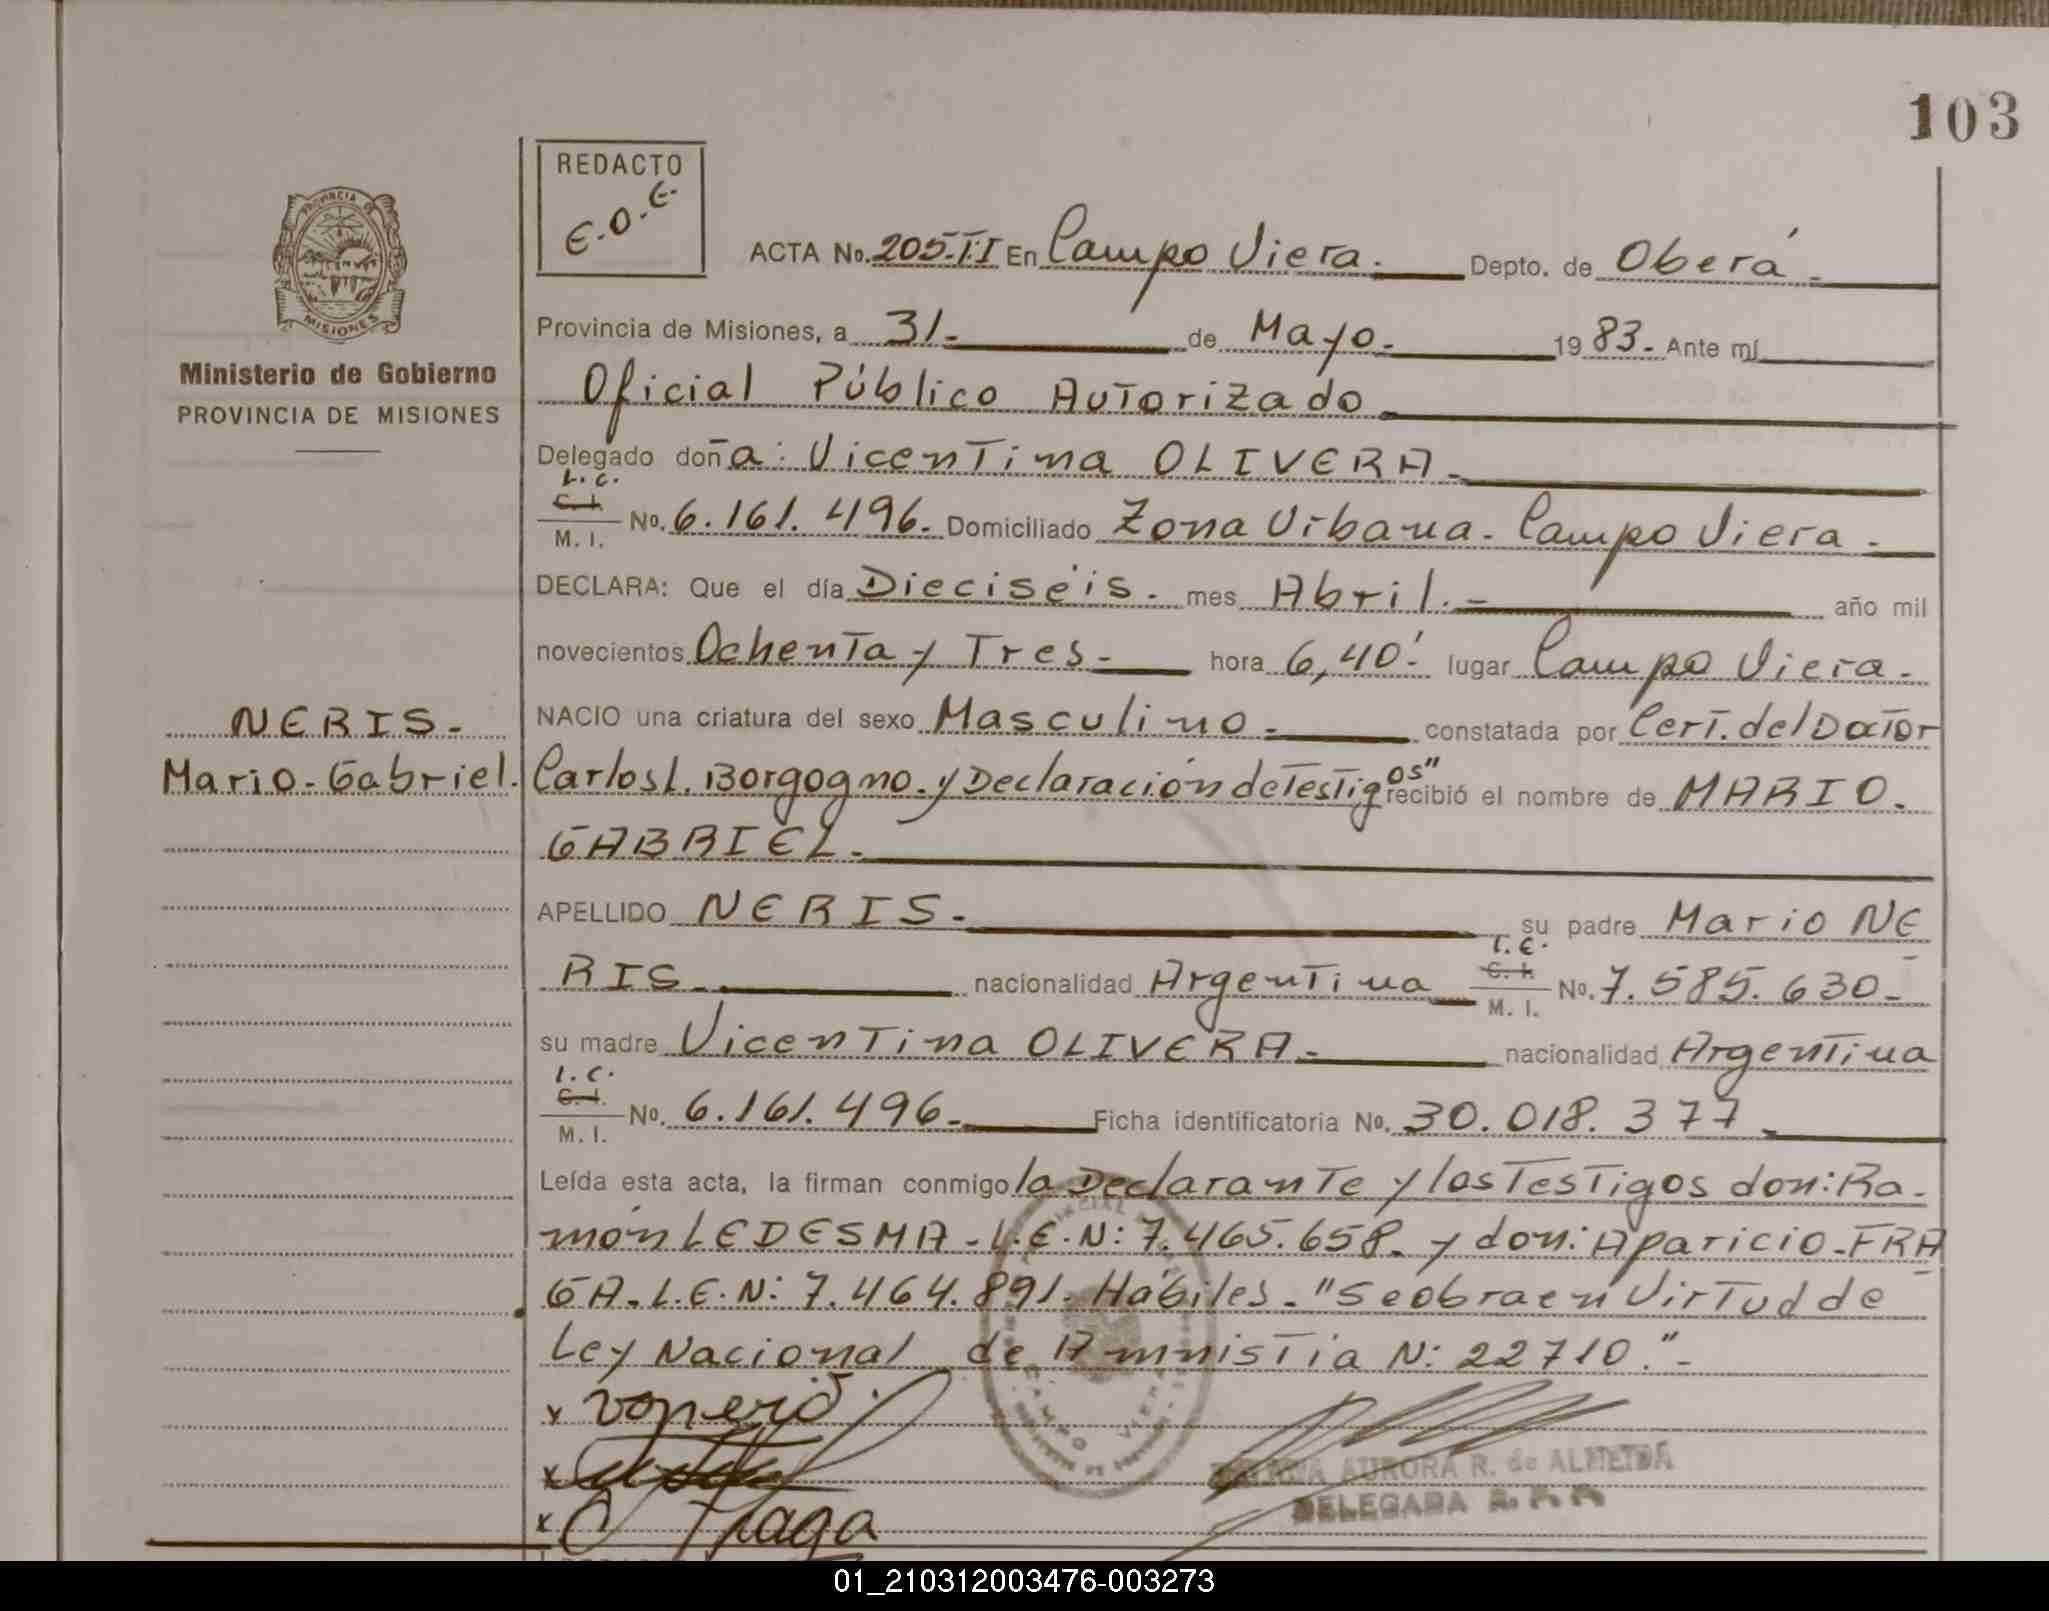 103
REDACTO
E.O.E.
PROVINCIA DE
MISIONES
Ministerio de Gobierno
PROVINCIA DE MISIONES
ACTA No. 205-II En Campo Viera. Depto. de Oberá.
Provincia de Misiones, a 31- de Mayo- 1983- Ante mí
Oficial Público Autorizado
Delegado doña: Vicentina OLIVERA-
L.C.
C.I.
M.I. No. 6.161.496. Domiciliado Zona Urbana- Campo Viera-
DECLARA: Que el día Dieciséis- mes Abril.- año mil
novecientos Ochenta y Tres- hora 6,40' lugar Campo Viera-
NERIS-
Mario-Gabriel.
NACIO una criatura del sexo Masculino- constatada por Cert. del Doctor
Carlos L. Borgogno. y Declaración de Testigos" recibió el nombre de MARIO-
GABRIEL-
APELLIDO NERIS- su padre Mario NE
RIS- nacionalidad Argentina L.E. C.I. M.I. No. 7.585.630-
su madre Vicentina OLIVERA- nacionalidad Argentina
L.C.
C.I.
M.I. No. 6.161.496- Ficha identificatoria No. 30.018.377-
Leída esta acta, la firman conmigo la Declarante y los Testigos don: Ra-
món LEDESMA-L.E.N: 7.465.658- y don: Aparicio-FRA
GA-L.E.N: 7.464.891. Hábiles-"Se obra en Virtud de
Ley Nacional de Amnistia N: 22710."-
x
x
x Fraga
AURORA R. de ALMEIDA
DELEGADA
CAMPO VIERA
01_210312003476-003273